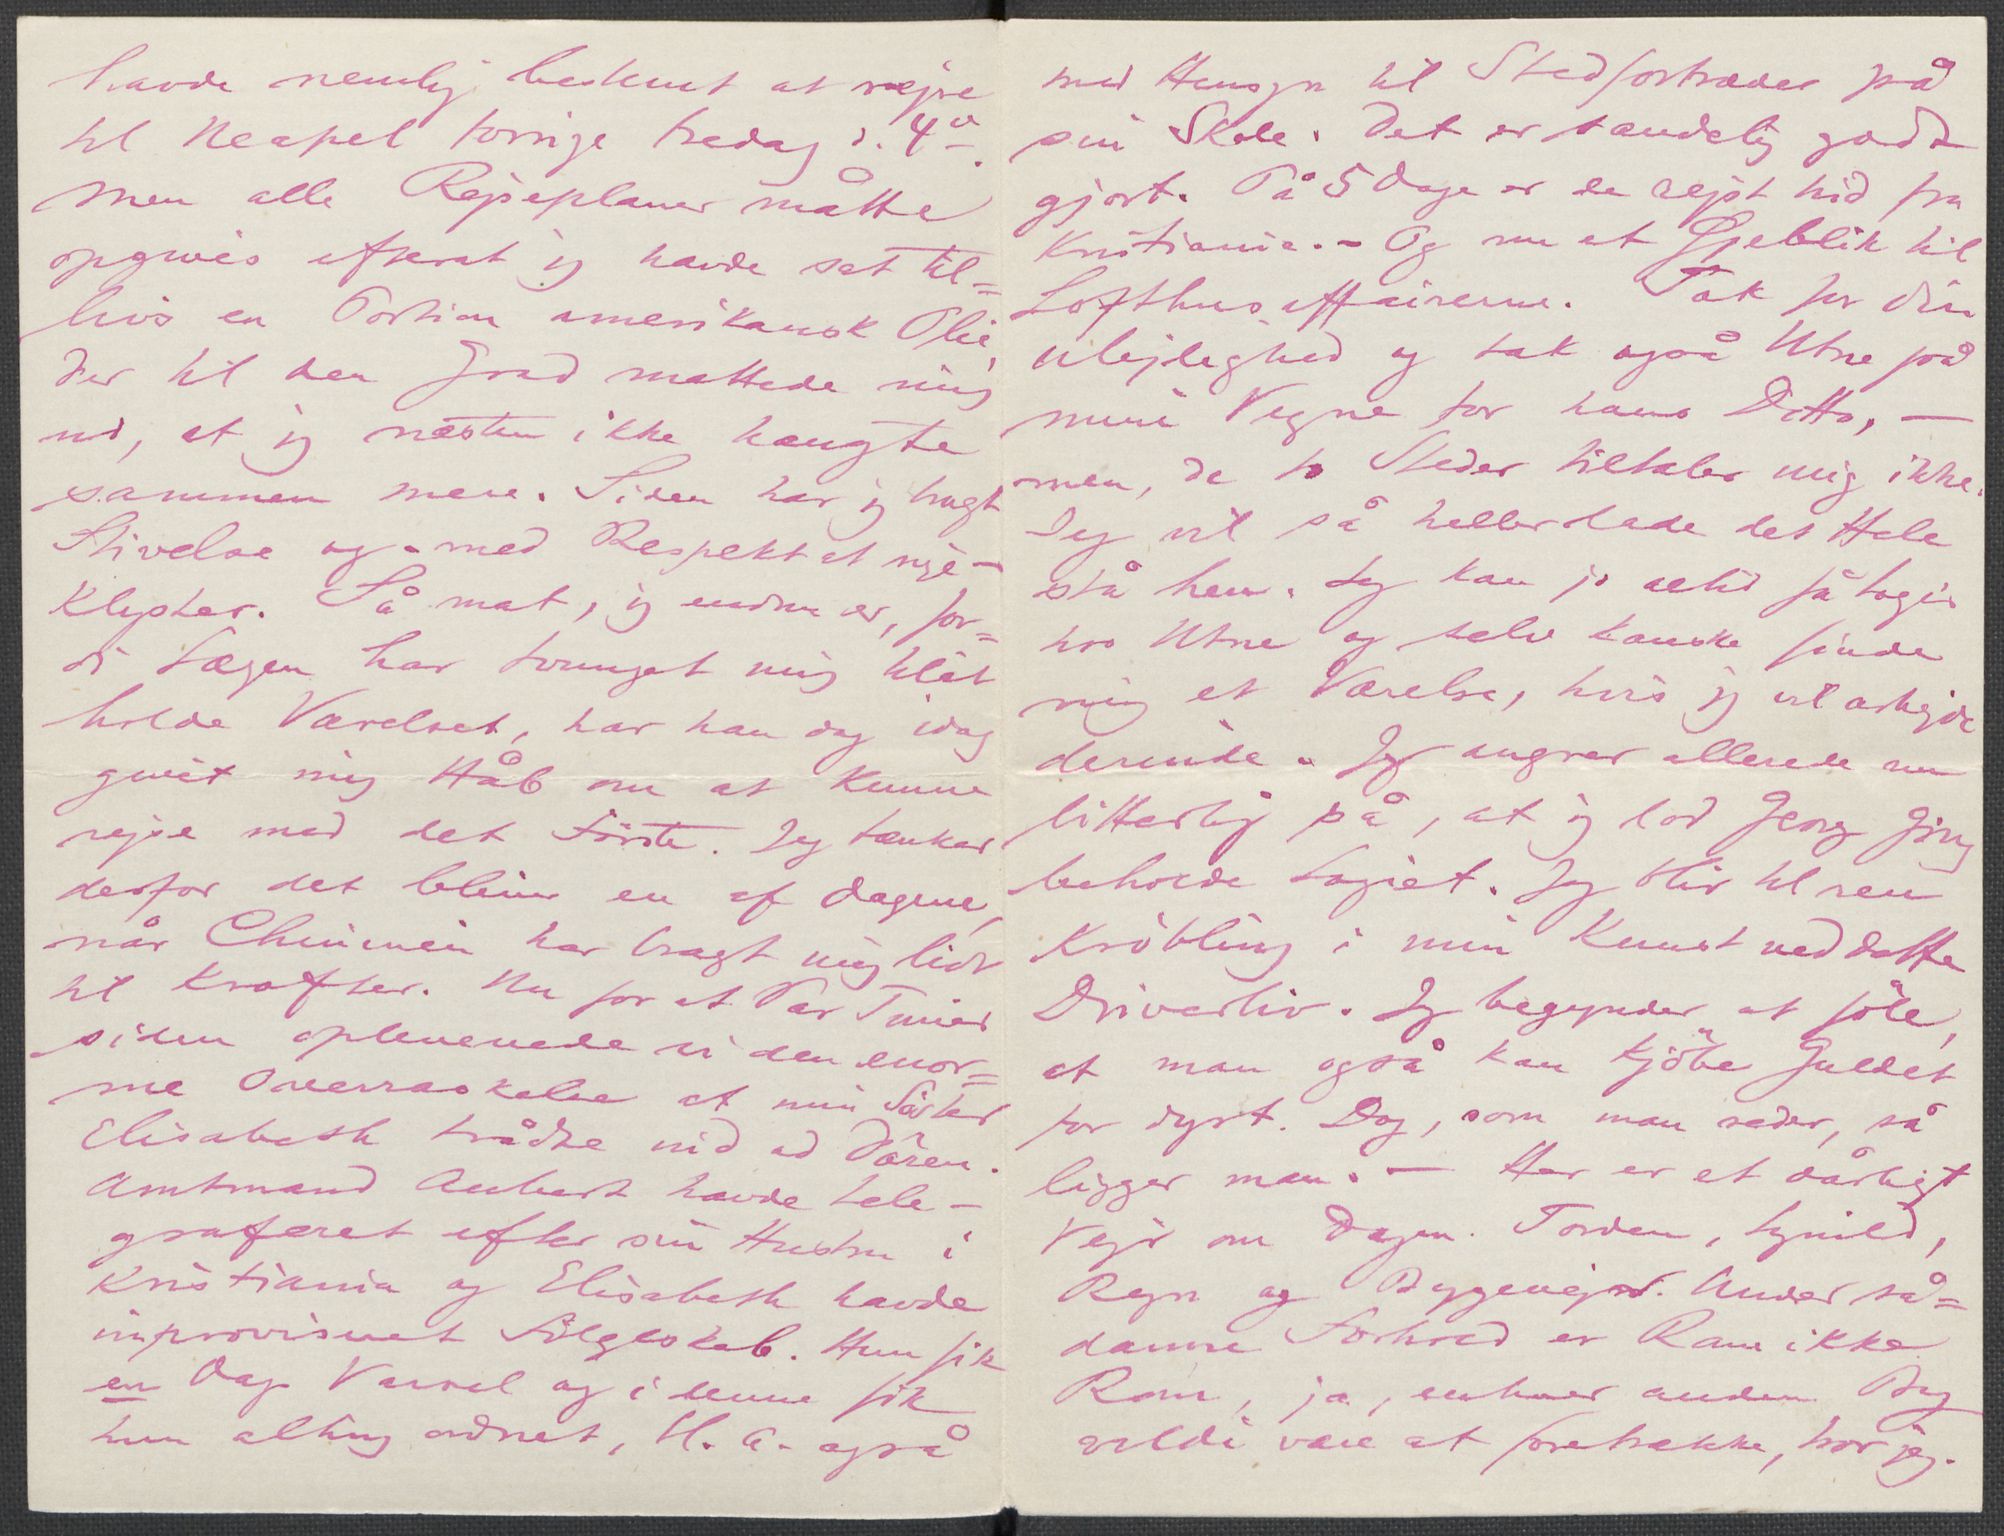 havde nemlig bestemt at rejse
til Neapel forrige Fredag d. 4de.
Men alle Rejseplaner måtte
opgives efterat jeg havde sat til=
livs en Portion amerikansk Olie,
der til den Grad mattede mig
ud, at jeg næsten ikke hængte
sammen mere. Siden har jeg brugt
Stivelse og – med Respekt at sige –
Klyster. Så mat, jeg endnu er, for=
di Lægen har tvunget mig til at
holde Værelset, har han dog idag
givet mig Håb om at kunne
rejse med det Første. Jeg tænker
derfor det bliver en af Dagene,
når Chininen har bragt mig lidt
til Kræfter. Nu for et Par Timer
siden oplevede vi den enor=
me Overraskelse at min Söster
Elisabeth trådte ind ad Dören.
Amtmand Aubert havde tele-
graferet efter sin Hustru i
Kristiania og Elisabeth havde
improviseret Fölgeskab. Hun fik
en Dags Varsel og i denne fik
hun alting ordnet, bl. a. også
med Hensyn til Stedfortræder på
sin Skole. Det er sandelig godt
gjort. På 5 Dage er de rejst hid fra
Kristiania. – Og nu et Øjeblik til
Lofthusaffairerne. Tak for din
Ulejlighed og tak også Utne på
mine Vegne for hans Ditto, –
men, de to Steder tiltaler mig ikke.
Jeg vil så heller lade det Hele
stå hen. Jeg kan jo altid få Logis
hos Utne og selv kanske finde
mig et Værelse, hvis jeg vil arbejde
derinde. Jeg angrer allerede nu
bitterlig på, at jeg lod Georg Grieg
beholde Logiet. Jeg blir til ren
Kröbling i min Kunst ved dette
Driverliv. Jeg begynder at föle,
at man også kan kjöbe Guldet
for dyrt. Dog, som man reder, så
ligger man. – Her er et dårligt
Vejr om Dagen. Torden, Lynild,
Regn og Byggevejr. Under så=
danne Forhold er Rom ikke
Rom, ja, enhver anden By
vilde være at foretrække, tror jeg.